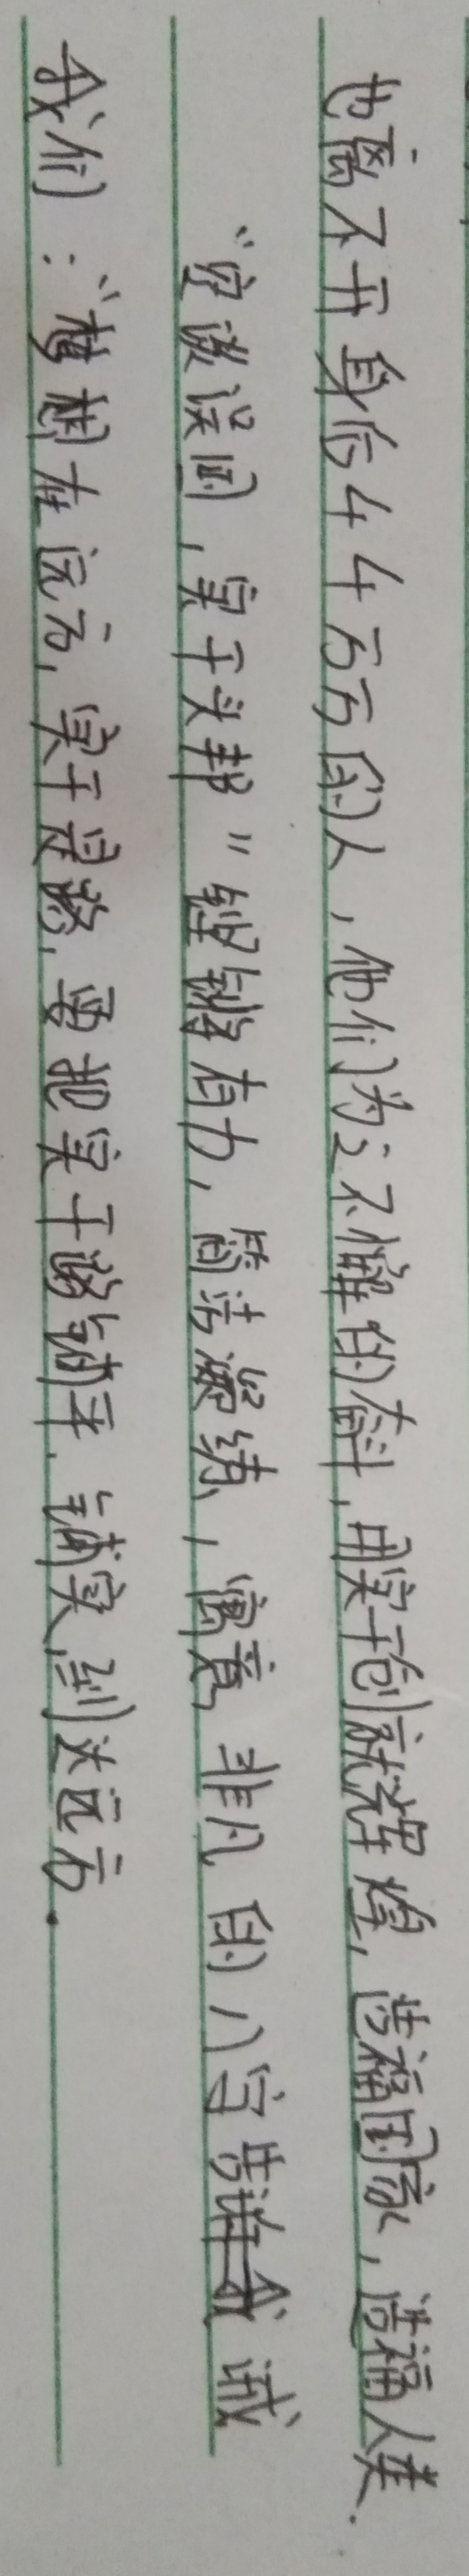 也离不开身后44万万的人，他们为之不懈的奋斗，用实干创就辉煌，造福国家，造福人类．
“空谈误国，实干兴邦”铿锵有力，简洁凝练，寓意非凡的八字告诫
我们：“梦想在远方，实干是路，要把实干路铺平、铺实，到达远方．